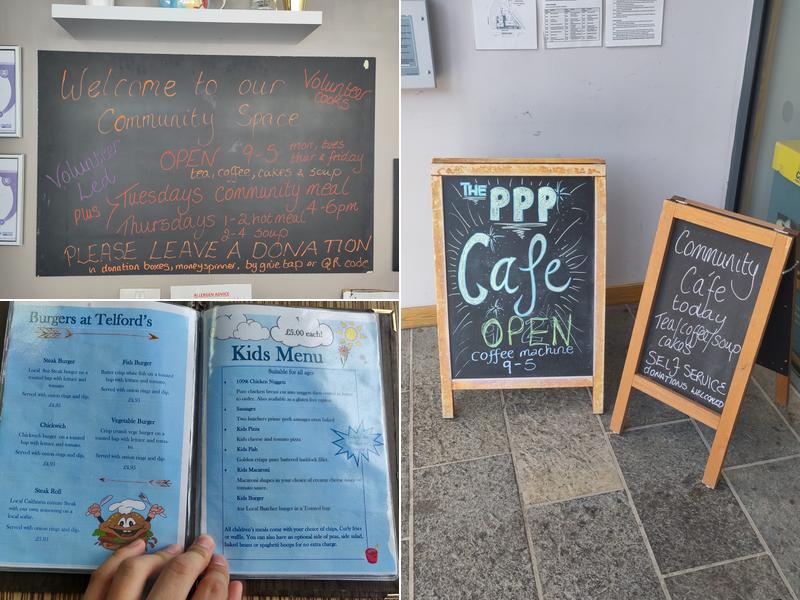 Welcome to our Volunteer cooks
Community Space
Volunteer
Led
OPEN 9-5 mon, tues
thur & friday
tea, coffee, cakes & soup
plus Tuesdays community meal
4-6pm
Thursdays 1-2 hot meal
2-4 soup
PLEASE LEAVE A DONATION
in donation boxes, moneyspinner, by give tap or QR code
ALLERGEN ADVICE
THE PPP
Cafe
OPEN
coffee machine
9-5
Community
Café
today
Tea/coffee/soup
cakes
SELF SERVICE
DONATIONS WELCOMED
Burgers at Telford's
Steak Burger
Local 8oz Steak burger on a
toasted bap with lettuce and
tomato.
Served with onion rings and dip.
£4.95
Fish Burger
Battered crisp white fish on a toasted
bap with lettuce and tomato.
Served with onion rings and dip.
£4.95
Chickwich
Chickwich burger on a toasted
bap with lettuce and tomato.
Served with onion rings and dip.
£4.95
Vegetable Burger
Crisp crumb vege burger on a toasted
bap with lettuce and toma-
to.
Served with onion rings and dip.
£4.95
Steak Roll
Local Caithness minute Steak
with our own seasoning on a
local softie.
Served with onion rings and dip.
£5.95
£5.00 each!
Kids Menu
Suitable for all ages
100% Chicken Nuggets
Pure chicken breast cut into nuggets then coated
to order. Also available as a gluten free option
Sausages
Two butchers prime pork sausages oven baked
Kids Pizza
Kids cheese and tomato pizza
Kids Fish
Golden crispy pure battered haddock fillet.
Kids Macaroni
Macaroni shapes in your choice of creamy cheese sauce or
tomato sauce.
Kids Burger
4oz Local Butcher burger in a Toasted bap
All children's meals come with your choice of chips, Curly fries
or waffle. You can also have an optional side of peas, side salad,
baked beans or spaghetti hoops for no extra charge.